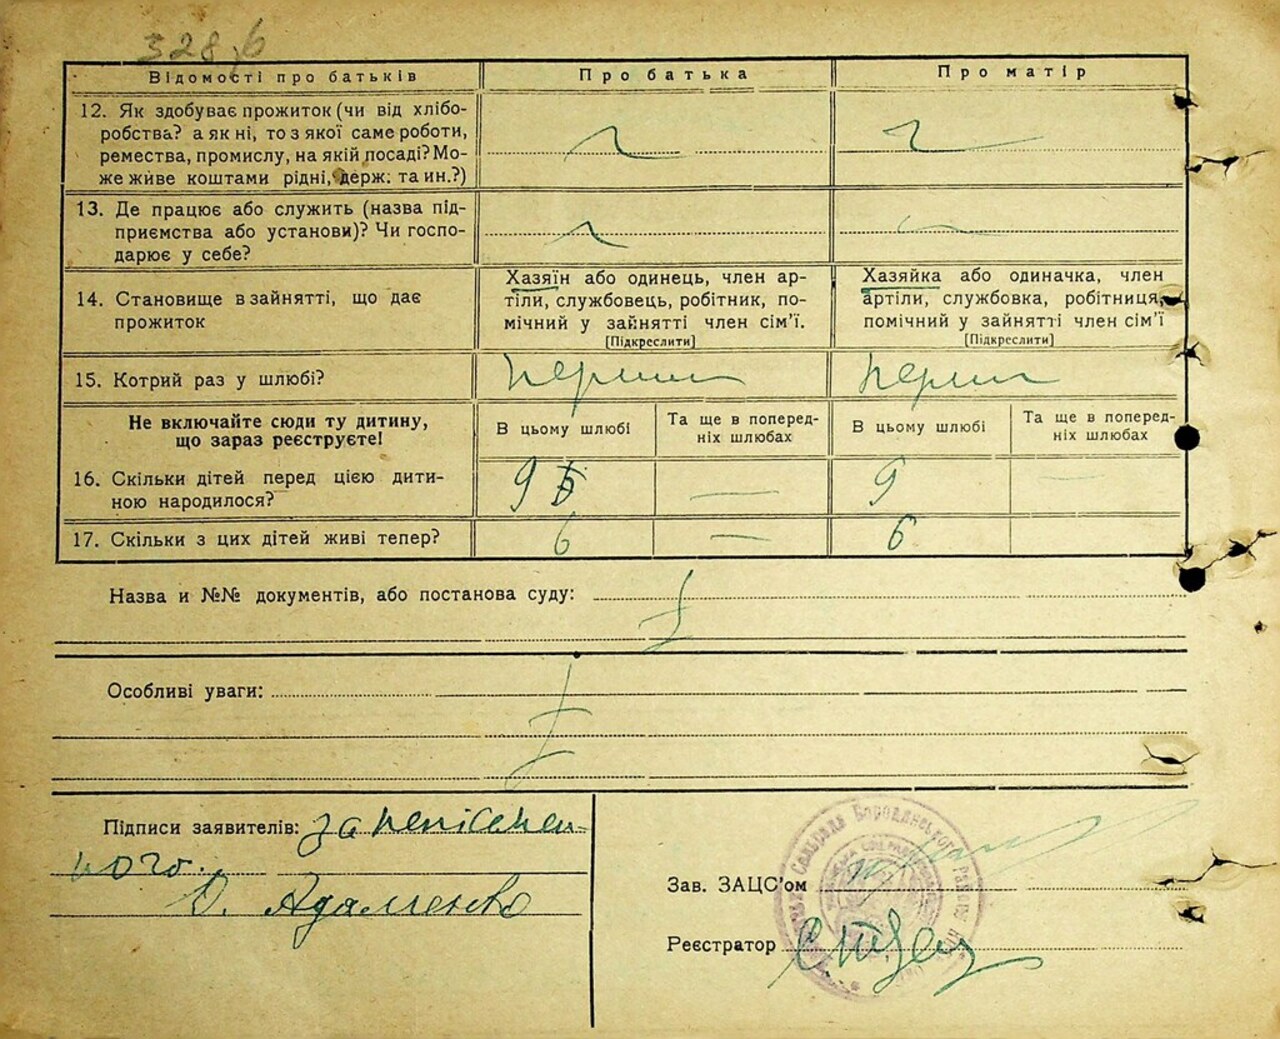 328,6
Відомості про батьків
Про батька
Про матір
12. Як здобуває прожиток (чи від хлібо-
робства? а як ні, то з якої саме роботи,
ремества, промислу, на якій посаді? Мо-
же живе коштами рідні, держ. та ин.?)
13. Де працює або служить (назва під-
приємства або установи)? Чи госпо-
дарює у себе?
14. Становище в зайнятті, що дає
прожиток
Хазяїн або одинець, член ар-
тіли, службовець, робітник, по-
мічний у зайнятті член сім'ї.
[Підкреслити]
Хазяйка або одиначка, член
артіли, службовка, робітниця,
помічний у зайнятті член сім'ї
[Підкреслити]
15. Котрий раз у шлюбі?
Не включайте сюди ту дитину,
що зараз реєструєте!
В цьому шлюбі
Та ще в поперед-
ніх шлюбах
В цьому шлюбі
Та ще в поперед-
ніх шлюбах
16. Скільки дітей перед цією дити-
ною народилося?
9
—
9
—
17. Скільки з цих дітей живі тепер?
6
—
6
Назва и №№ документів, або постанова суду:
Особливі уваги:
Підписи заявителів: за неписьмен-
ного.
О. Адаменко
Зав. ЗАЦС'ом
Реєстратор
Сільрада Бородянського району